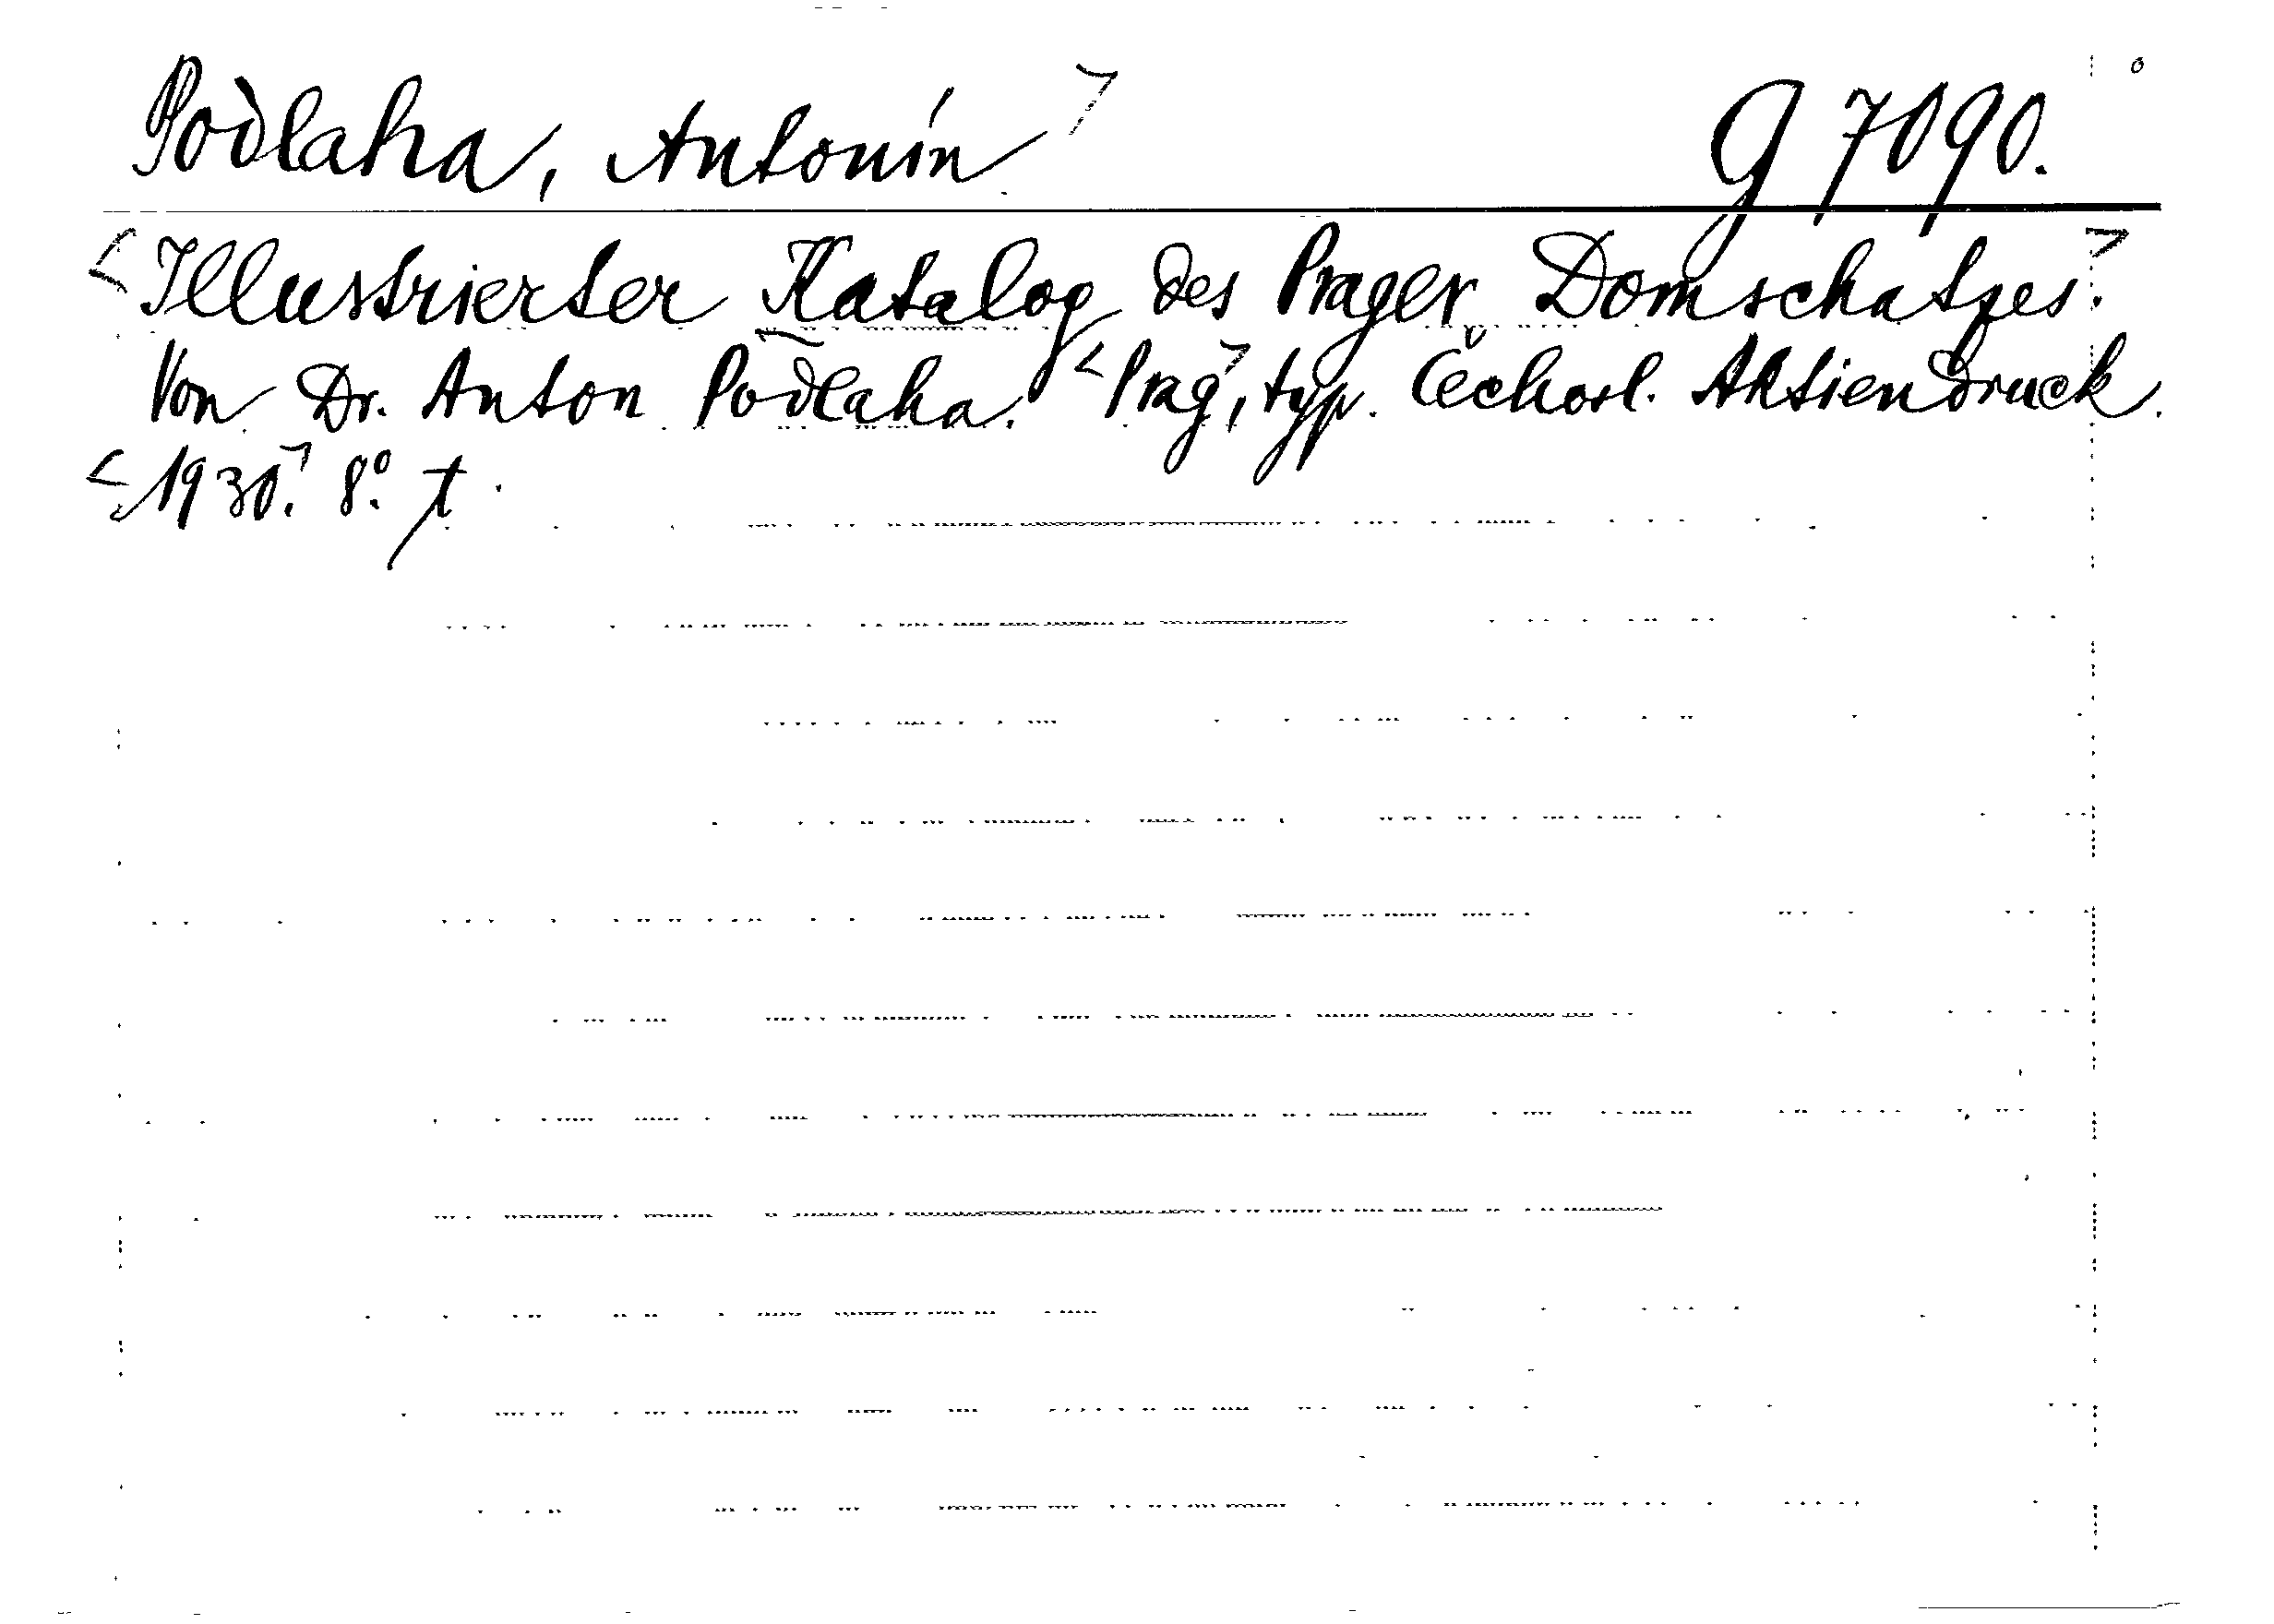 Podlaha, Antonín> G 7090.
<Illustrierter Katalog des Prager Domschatzes.>
Von Dr. Anton Podlaha. <Prag>, typ. Čechosl. Aktiendruck.
<1930.> 8°. t.